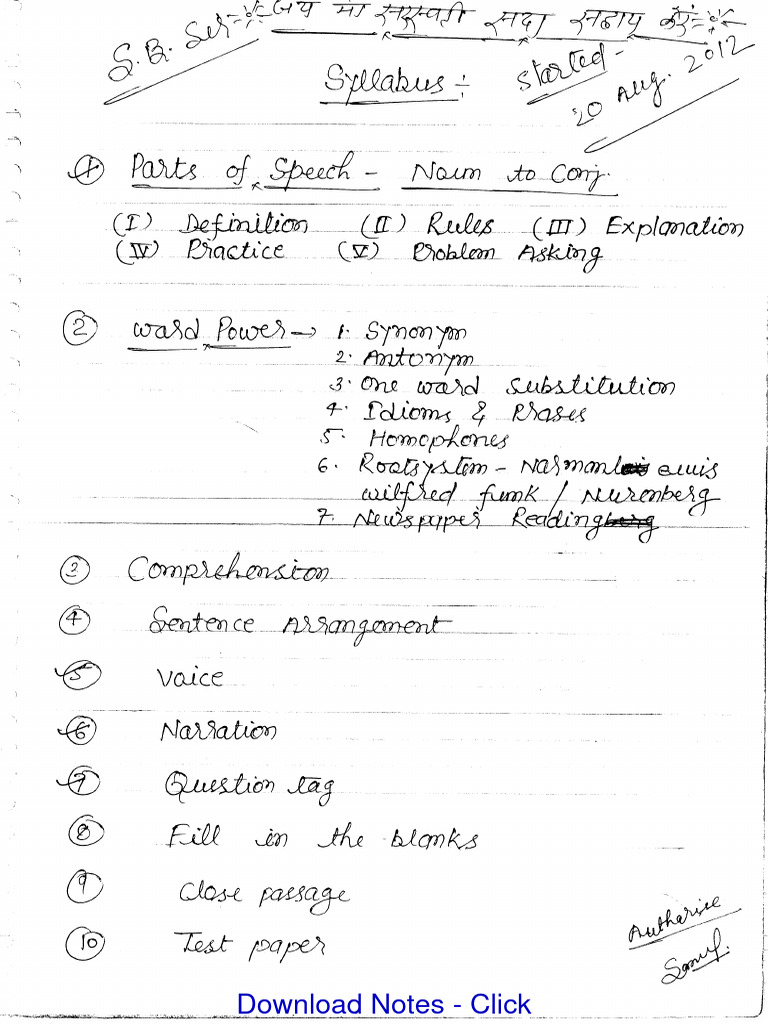 जय मां सरस्वती सदा सहाय करें
S.B. Ser
Syllabus :-
Started -
20 Aug. 2012
1 Parts of Speech - Noun to Conj.
(I) Definition (II) Rules (III) Explanation
(IV) Practice (V) Problem Asking
2 Word Power → 1. Synonym
2. Antonym
3. One word substitution
4. Idioms & Prases
5. Homophones
6. Rootsystem - Narman
wilfred funk / Nurenberg
7. Newspaper Reading
3 Comprehension
4 Sentence Arrangement
5 Voice
6 Narration
7 Question tag
8 Fill in the blanks
9 Close passage
10 Test paper
Autharise
Download Notes - Click